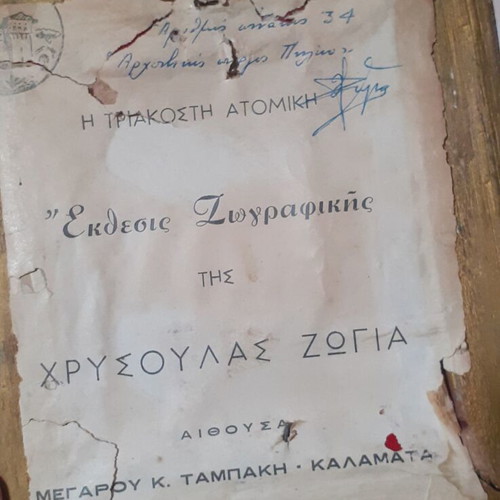 Αριθμός πίνακος 34
Αρχοντικός γάμος Πηλίου
Η ΤΡΙΑΚΟΣΤΗ ΑΤΟΜΙΚΗ
Ἔκθεσις Ζωγραφικῆς
ΤΗΣ
ΧΡΥΣΟΥΛΑΣ ΖΩΓΙΑ
ΑΙΘΟΥΣΑ
ΜΕΓΑΡΟΥ Κ. ΤΑΜΠΑΚΗ · ΚΑΛΑΜΑΤΑ